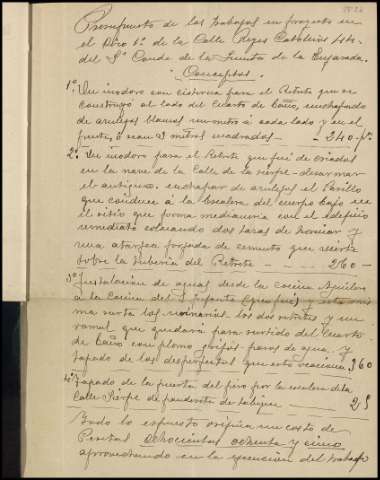 Presupuesto de los trabajos en proyecto en
el Piso 6º de la Calle Reyes Católicos
del Sr Conde de la Puente de la
Conceptos.
1º Un inodoro con cisterna para el Retrete que se
construyó al lado del Cuarto de Baño, enchapado
de azulejos blancos un metro á cada lado y en el
frente, ó sean 9 metros cuadrados — 240 pts
2º Un inodoro para el Retrete que fué de criados
en la nave de la Calle de la Sierpe - desarmar
el antiguo. enchapar de azulejos el Pasillo
que conduce á la Escalera del cuerpo bajo en
el sitio que forma medianeria con el edificio
inmediato colocando dos tazas de
una atarjea forjada de cemento que
sobre la tuberia del Retrete — 260 —
3º Instalación de aguas desde la cocina
á la Cocina del
ma surta los los dos retretes y un
ramal que quedará para surtido del Cuarto
de Baño con plomo grifos pasos de agua y
tapado de los desperfectos que esto ocasione 360
4º Tapado de la puerta del piso por la escalera de la
Calle Sierpe de pandereta de tabique — 25
Todo lo expuesto origina un costo de
Pesetas Ochocientas ochenta y cinco
aprovechando en la ejecución del trabajo